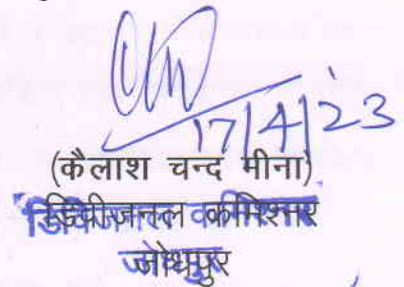 17/4/23
(कैलाश चन्द मीना)
डिवीजनल कमिश्नर
जोधपुर